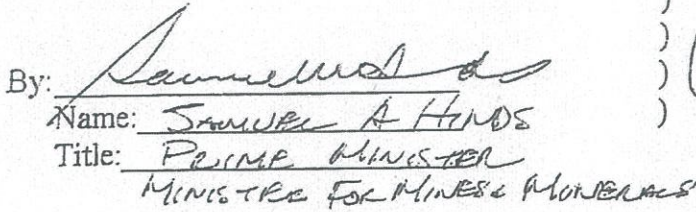 By: Samuel Hinds )
)
Name: SAMUEL A HINDS )
Title: PRIME MINISTER
MINISTER FOR MINES & MINERALS